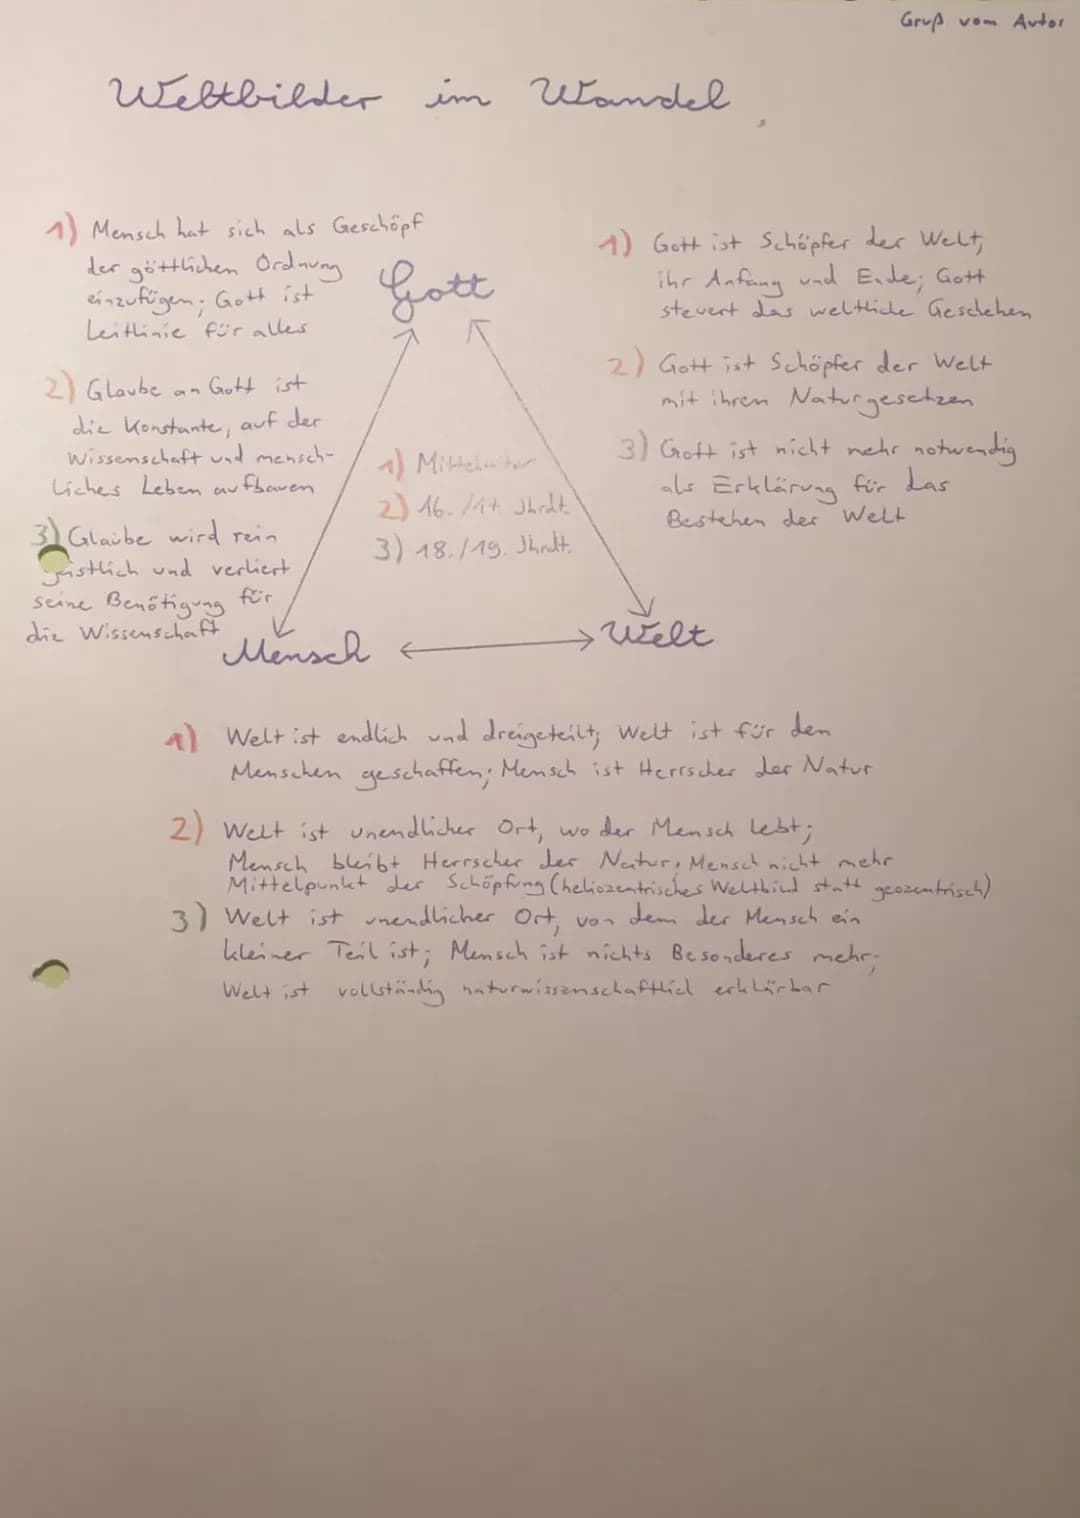 Gruß vom Autor
Weltbilder im Wandel
1) Mensch hat sich als Geschöpf
der göttlichen Ordnung
einzufügen; Gott ist
Leitlinie für alles
2) Glaube an Gott ist
die Konstante, auf der
Wissenschaft und mensch-
liches Leben aufbauen
3) Glaube wird rein
geistlich und verliert
seine Benötigung für
die Wissenschaft
Gott
1) Mittelalter
2) 16./17. Jhrdt.
3) 18./19. Jhrdt.
Mensch
Welt
1) Gott ist Schöpfer der Welt,
ihr Anfang und Ende; Gott
steuert das weltliche Geschehen
2) Gott ist Schöpfer der Welt
mit ihren Naturgesetzen
3) Gott ist nicht mehr notwendig
als Erklärung für das
Bestehen der Welt
1) Welt ist endlich und dreigeteilt; Welt ist für den
Menschen geschaffen; Mensch ist Herrscher der Natur
2) Welt ist unendlicher Ort, wo der Mensch lebt;
Mensch bleibt Herrscher der Natur; Mensch nicht mehr
Mittelpunkt der Schöpfung (heliozentrisches Weltbild statt geozentrisch)
3) Welt ist unendlicher Ort, von dem der Mensch ein
kleiner Teil ist; Mensch ist nichts Besonderes mehr;
Welt ist vollständig naturwissenschaftlich erklärbar